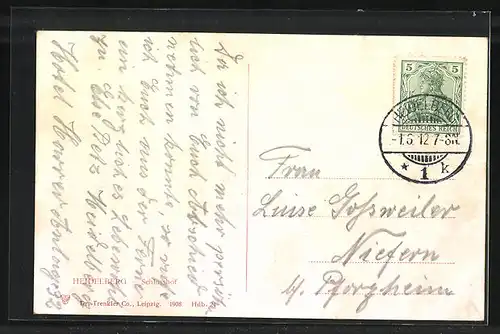 Da ich nicht mehr persön-
lich von Euch Abschied
nehmen konnte, so rufe
ich Euch aus der Ferne
ein herzliches Lebewohl
zu.
Heidelberg
Hotel
5 5
DEUTSCHES REICH
HEIDELBERG
-1.5.12.7-8N.
* 1 k
Frau
Luise Goßweiler
Niefern
b/ Pforzheim
HEIDELBERG Schlosshof
Trenkler Co., Leipzig. 1908 Hdb. 21